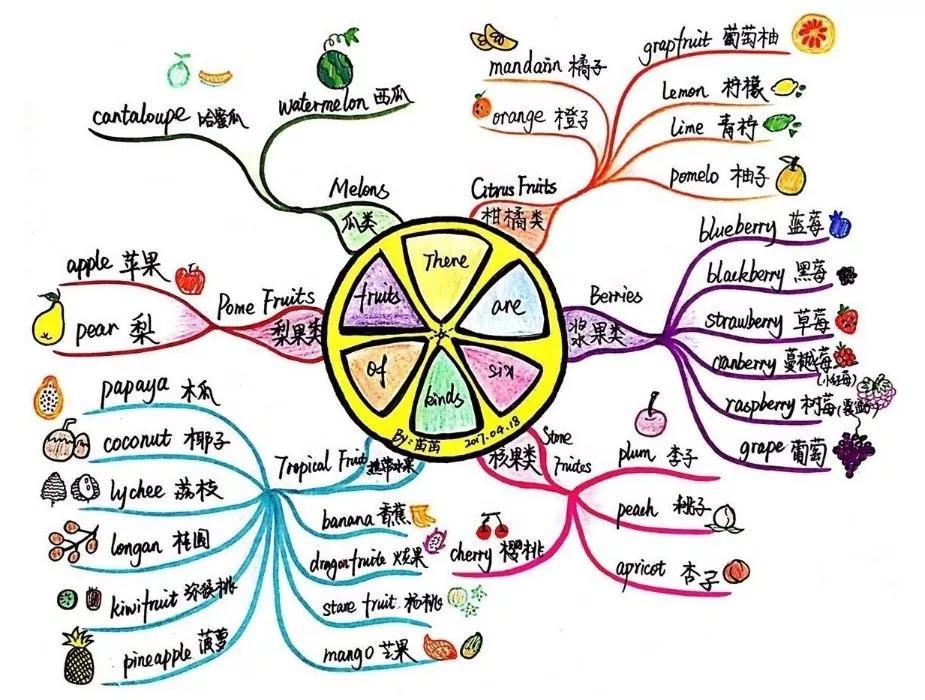 There
are
six
kinds
of
fruits
By: 苗苗 2017.04.18
Melons
瓜类
cantaloupe 哈蜜瓜
watermelon 西瓜
Citrus Fruits
柑橘类
mandarin 橘子
orange 橙子
grapfruit 葡萄柚
Lemon 柠檬
lime 青柠
pomelo 柚子
Berries
浆果类
blueberry 蓝莓
blackberry 黑莓
strawberry 草莓
canberry 蔓越莓
(小红莓)
raspberry 树莓
grape 葡萄
Stone
Fruites
核果类
plum 李子
peach 桃子
apricot 杏子
cherry 樱桃
Tropical Fruit
热带水果
papaya 木瓜
coconut 椰子
lychee 荔枝
longan 桂圆
kiwifruit 猕猴桃
pineapple 菠萝
banana 香蕉
dragonfruite 火龙果
stare fruit 杨桃
mango 芒果
Pome Fruits
梨果类
apple 苹果
pear 梨